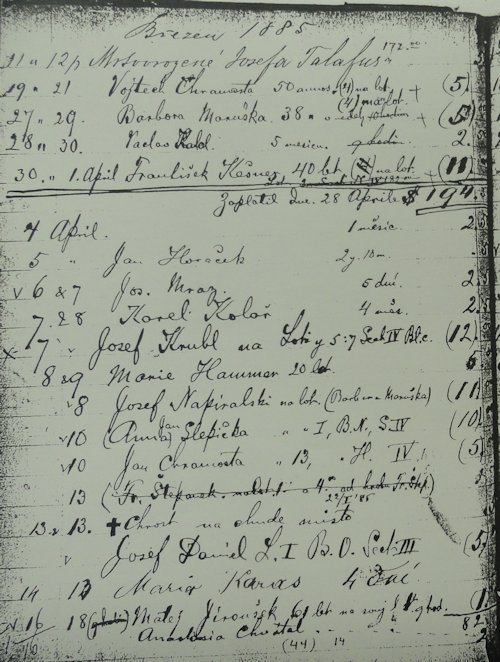 Březen 1885
172.00
21 „ 12/ Mrtvorozené Josefa Talafus
19 „ 21 Vojtěch Chramosta 50 annos (4) na lot. + (5)
27 „ 29. Barbora Maruška 38 „ (4) na lot. + (5)
28 „ 30. Vaclav 5 měsicu. 9 hodin. 2.
30. „ 1. April František Kesner 40 let na lot. + (11)
Zaplatil Dne. 28 Aprile $ 194.
4 April. 1 měsic. 2
5 „ Jan Horáček 2 g. 10 m.
v 6 & 7 Jos. Mraz. 5 dní. 2
7. & 8 Karel Kolař 4 měs. 2.
x 7 v Jozef Krubl na Loty 5:7 Sect IV Bl: c. (12
8 & 9 Marie Hammer 20 let 5
v 8 Josef Napiralski na lot. (Barbora Maruška) (11
v 10 (Anna) Jan Slepička „ „ I, B.N., S.IV (10)
v 10 Jan Chramosta „ 13, „ H. IV (5
13 (Fr. Štěpanek
22/I '85
13. v 13. ✝ Chrost na chudé místo
v Josef Daniel L. I B. O. Sect. III (5
14 13 Maria Karas 4 Dní
v 16 18 Matěj Jiroušek 61 let na svůj (1
Anastasia Chvátal „ 82
(44) 14